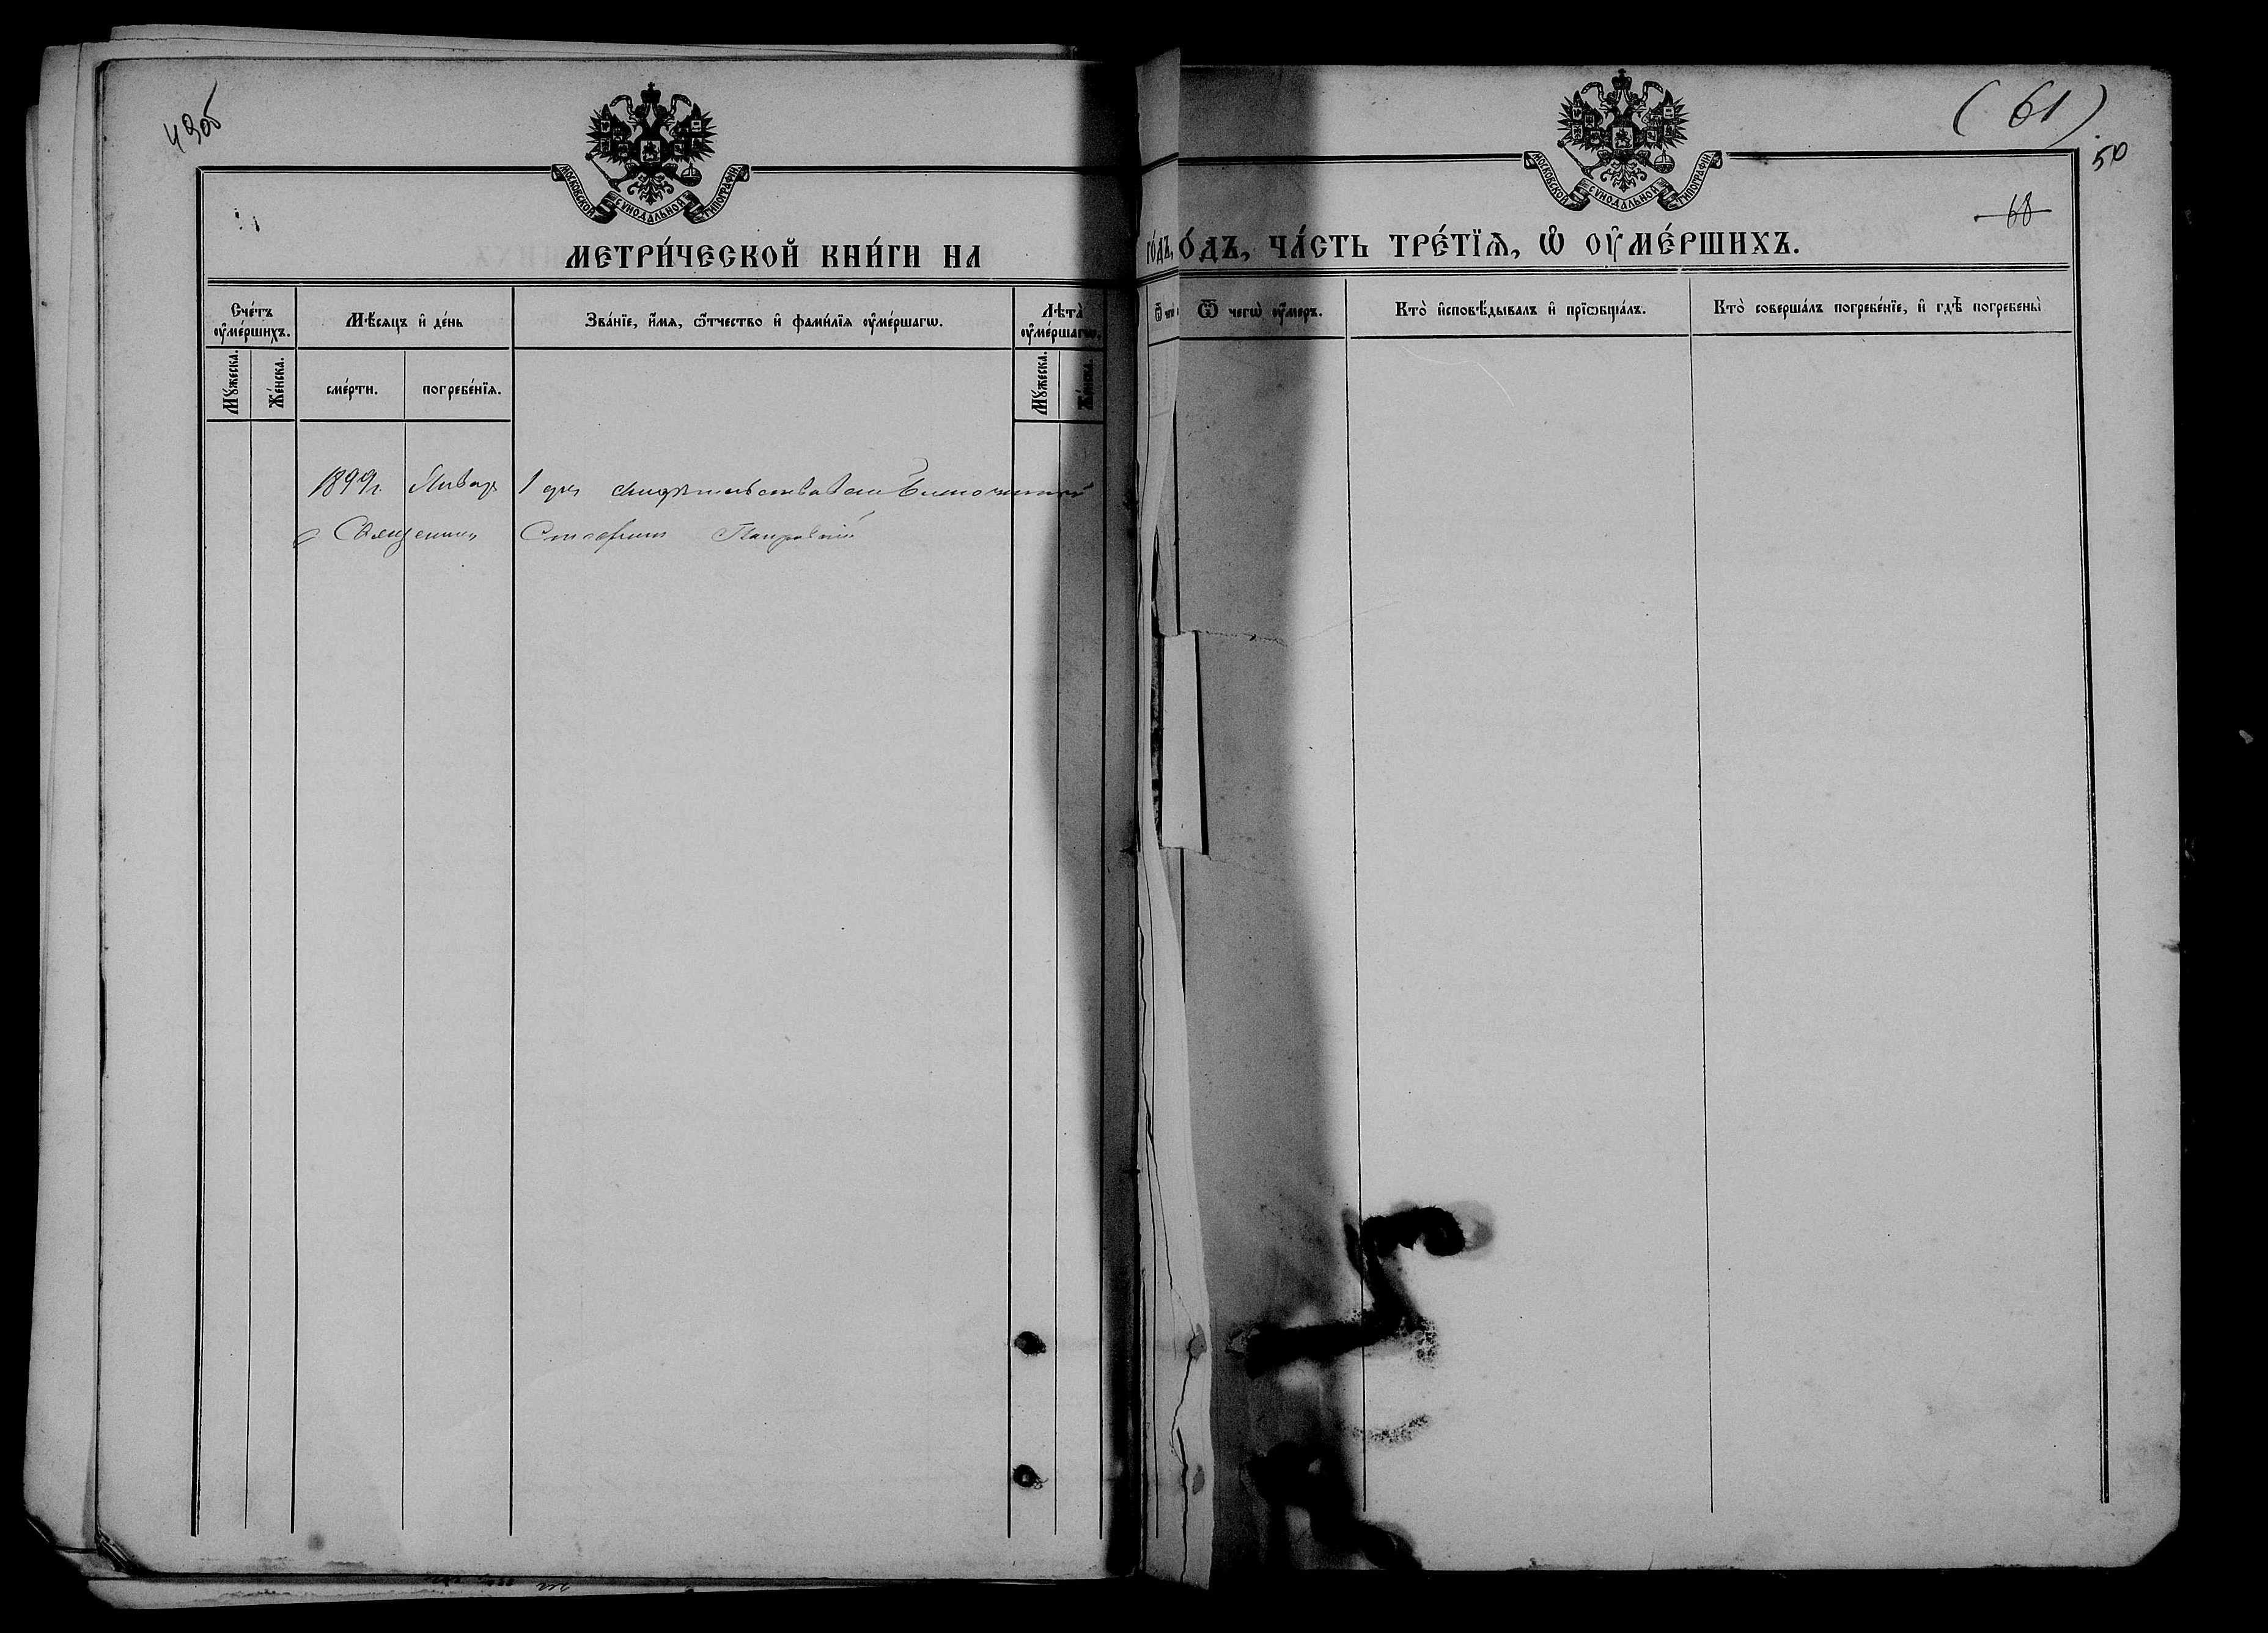 49об
(61)
50
68
МОСКОВСКОЙ СѴНОДАЛЬНОЙ ТИПОГРАФІИ
МОСКОВСКОЙ СѴНОДАЛЬНОЙ ТИПОГРАФІИ
МЕТРИ́ЧЕСКОЙ КНИ́ГИ НА
ГО́ДЪ, О́ДЪ, ЧА́СТЬ ТРЕ́ТЇѦ, Ѡ҆ ОУ҆МЕ́РШИХЪ.
Сче́тъ оу҆ме́ршихъ.
Мѣ́сяцъ и҆ де́нь
Зва́нїе, и҆́мя, ѻ҆́тчество и҆ фами́лїя оу҆ме́ршагѡ.
Лѣ́та оу҆ме́ршагѡ.
Ѿ чегѡ̀ оу҆́меръ.
Кто̀ и҆сповѣ́дывалъ и҆ прїѡбща́лъ.
Кто̀ соверша́лъ погребе́нїе, и҆ гдѣ̀ погребены̀
Мꙋ́жеска.
Же́нска.
сме́рти.
погребе́нїя.
Мꙋ́жеска.
Же́нска.
1899г. Январ 1 дня свидѣтельствовалъ Благочинный
Священник Покровскій